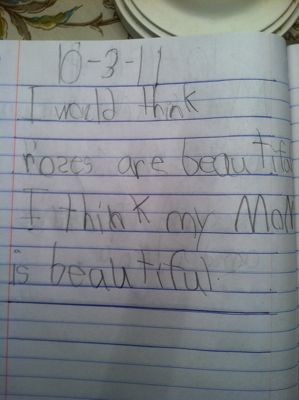 10-3-11
I would think
rozes are beautiful
I think my Mom
is beautiful.